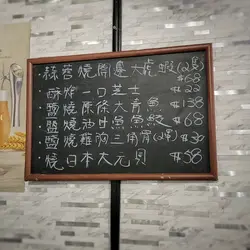 ·蒜蓉燒開邊大虎蝦(2隻) $158
·酥炸一口芝士 $22
·鹽燒原條大青魚 $138
·鹽燒油甘魚魚鮫 $68
·鹽燒雞胸三角骨(2串) $30
·燒日本大元貝 $58